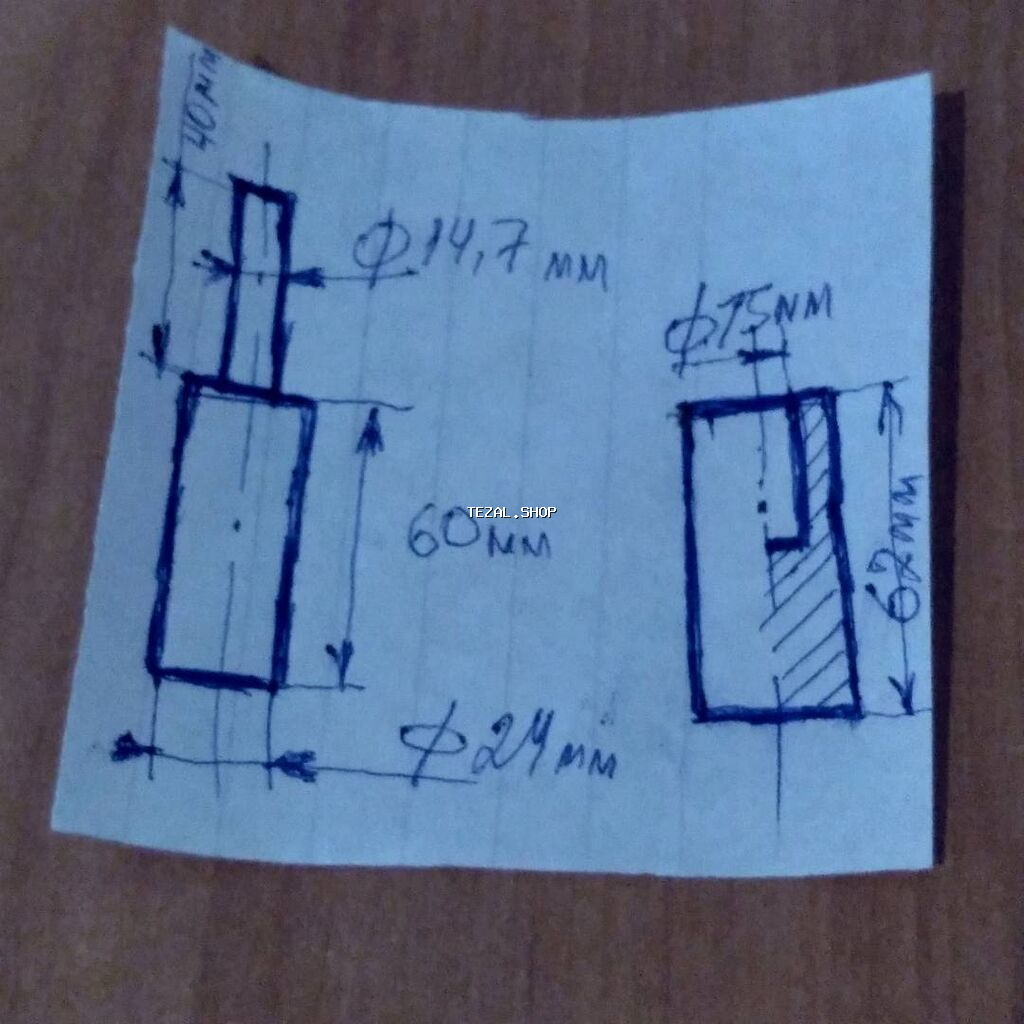 40мм
Ф14,7 мм
Ф15мм
TEZAL.SHOP
60мм
67мм
Ф24мм